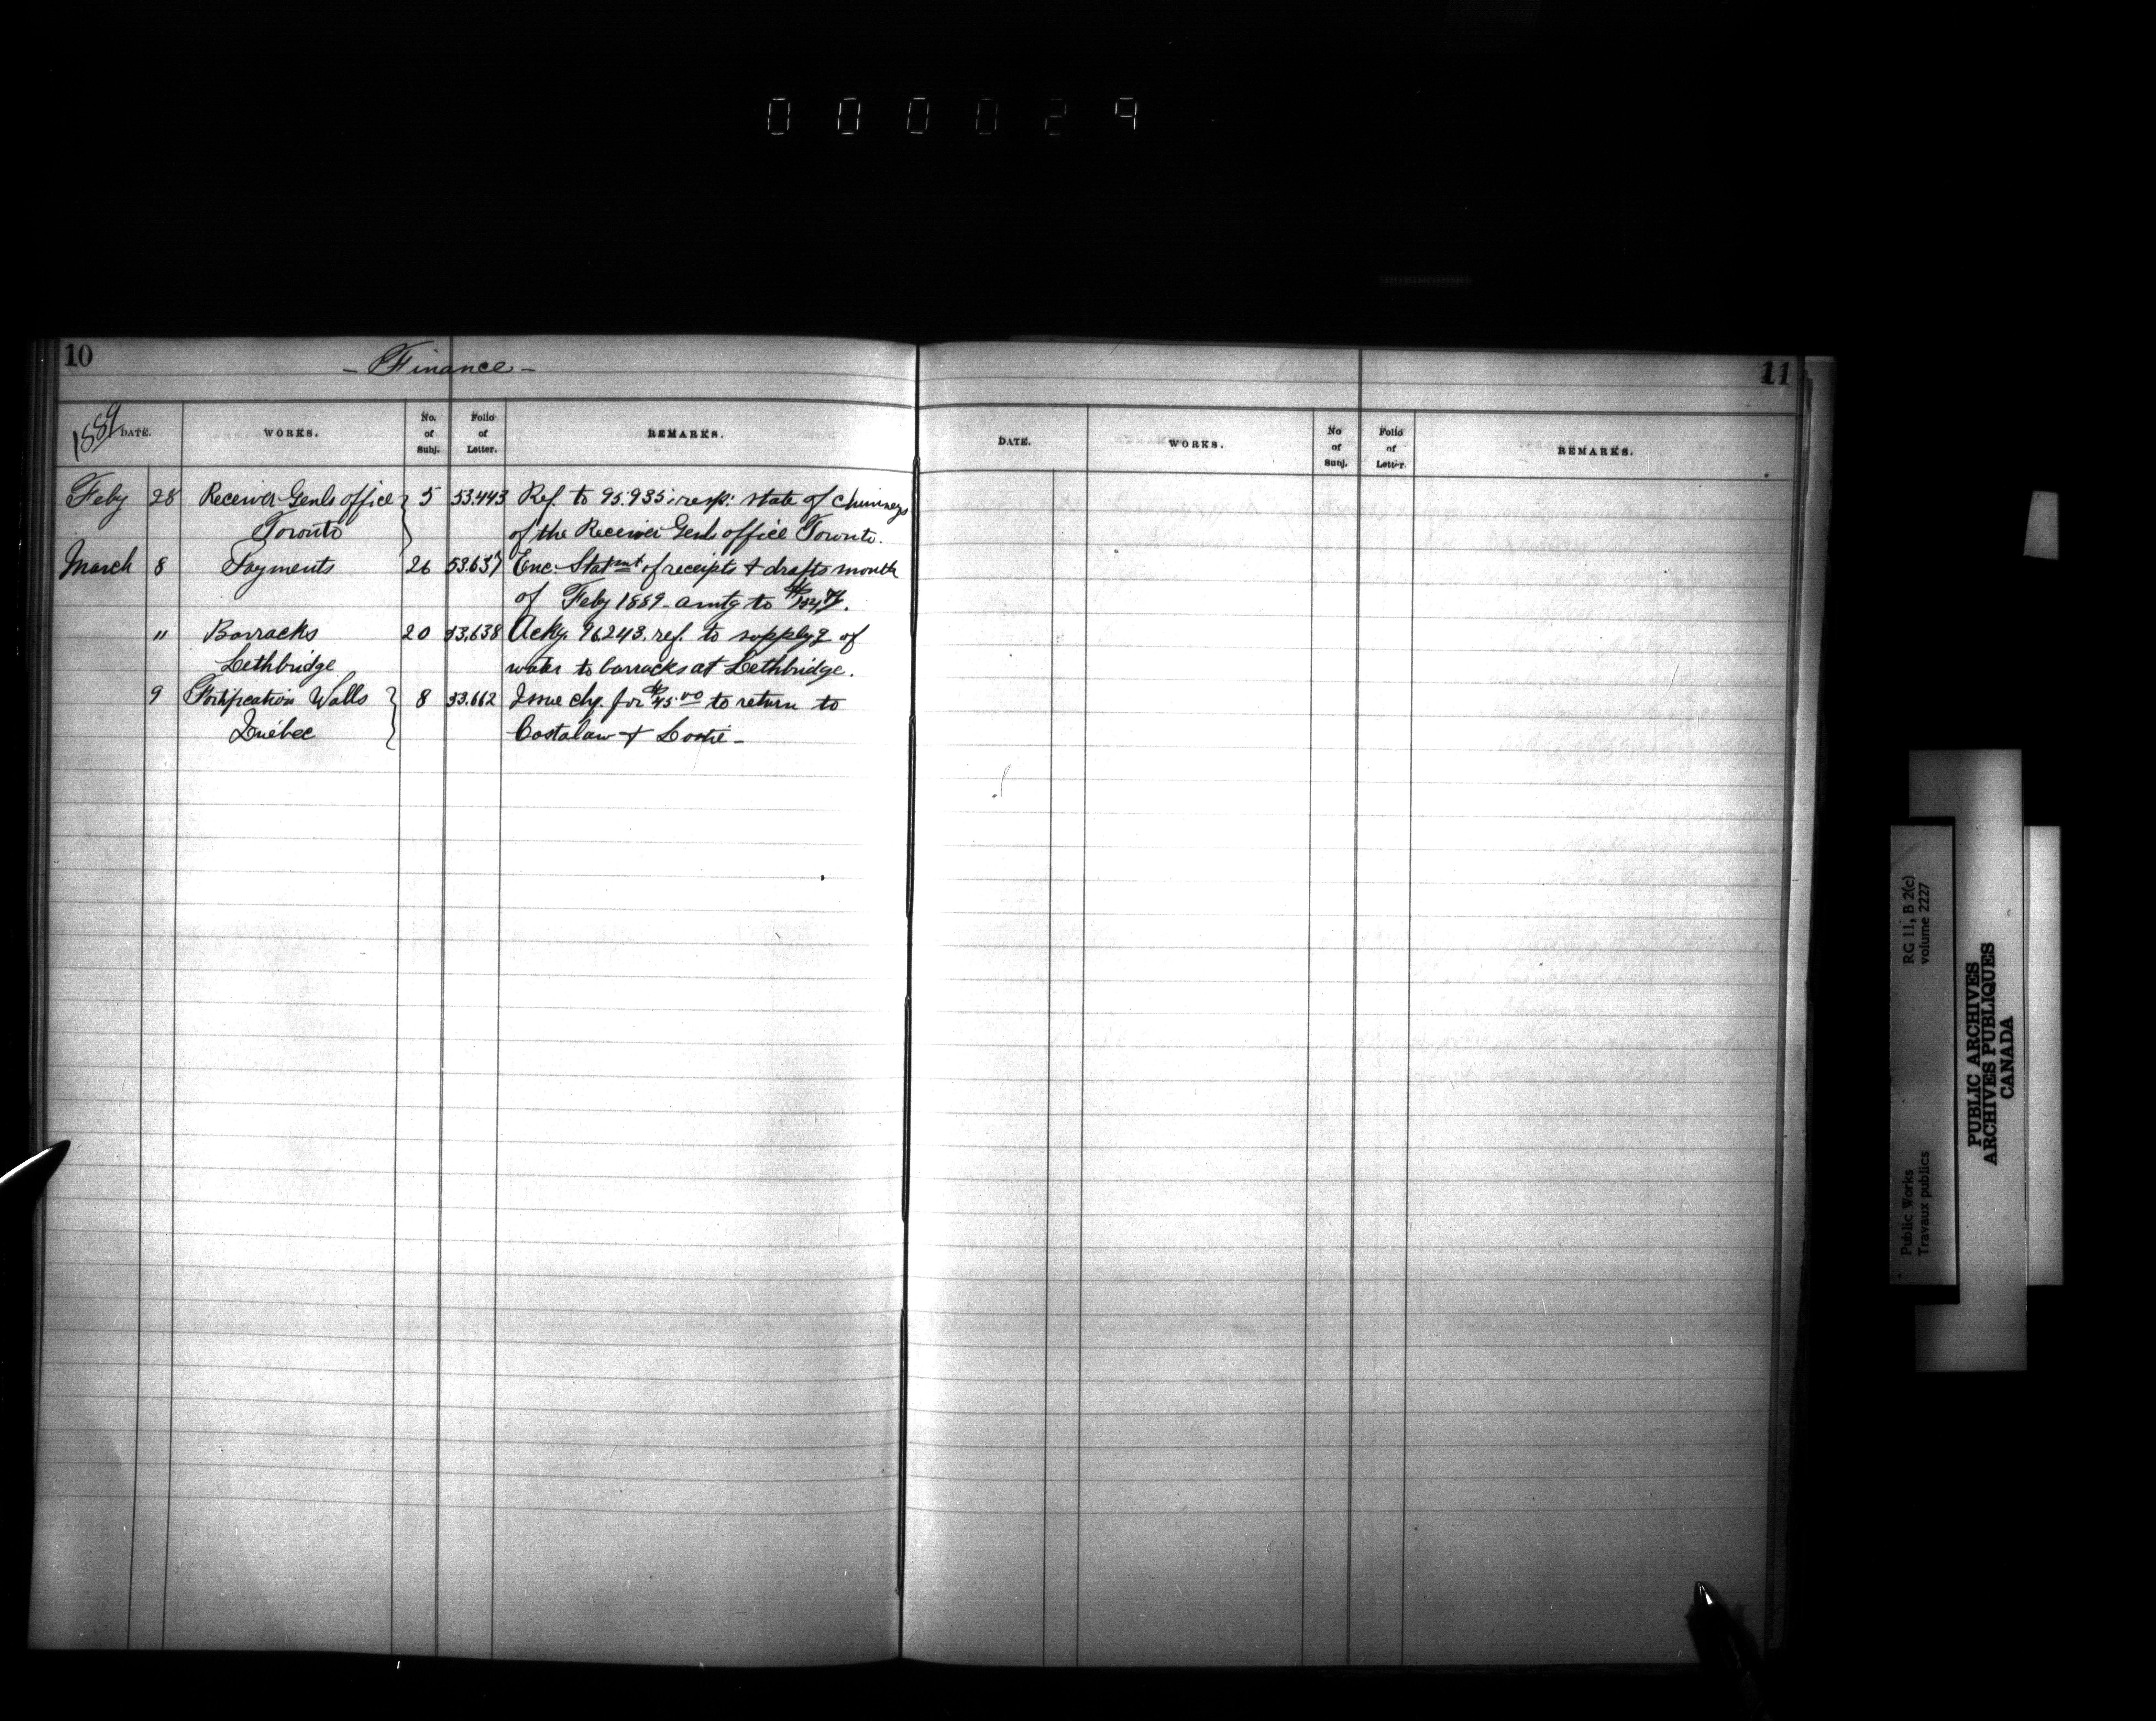 000029
10
- Finance -
1889 DATE. WORKS. No. of Subj. Folio of Letter. REMARKS.
Feby 28 Receiver Genls office 5 53.443 Ref. to 95.935 resp: state of chimneys
Toronto of the Receiver Genls office Toronto.
March 8 Payments 26 53.637 Enc. Statmnt of receipts & drafts month
of Feby 1889 - amtg to
" Barracks 20 53,638 Ackg. 96243. ref. to supplyg of
Lethbridge water to barracks at Lethbridge.
9 Fortification Walls 8 53.662 Issue chq. for $45.00 to return to
Québec &
11
DATE. WORKS. No of Subj. Folio of Letter. REMARKS.
RG 11, B 2(c)
volume 2227
Public Works
Travaux publics
PUBLIC ARCHIVES
ARCHIVES PUBLIQUES
CANADA